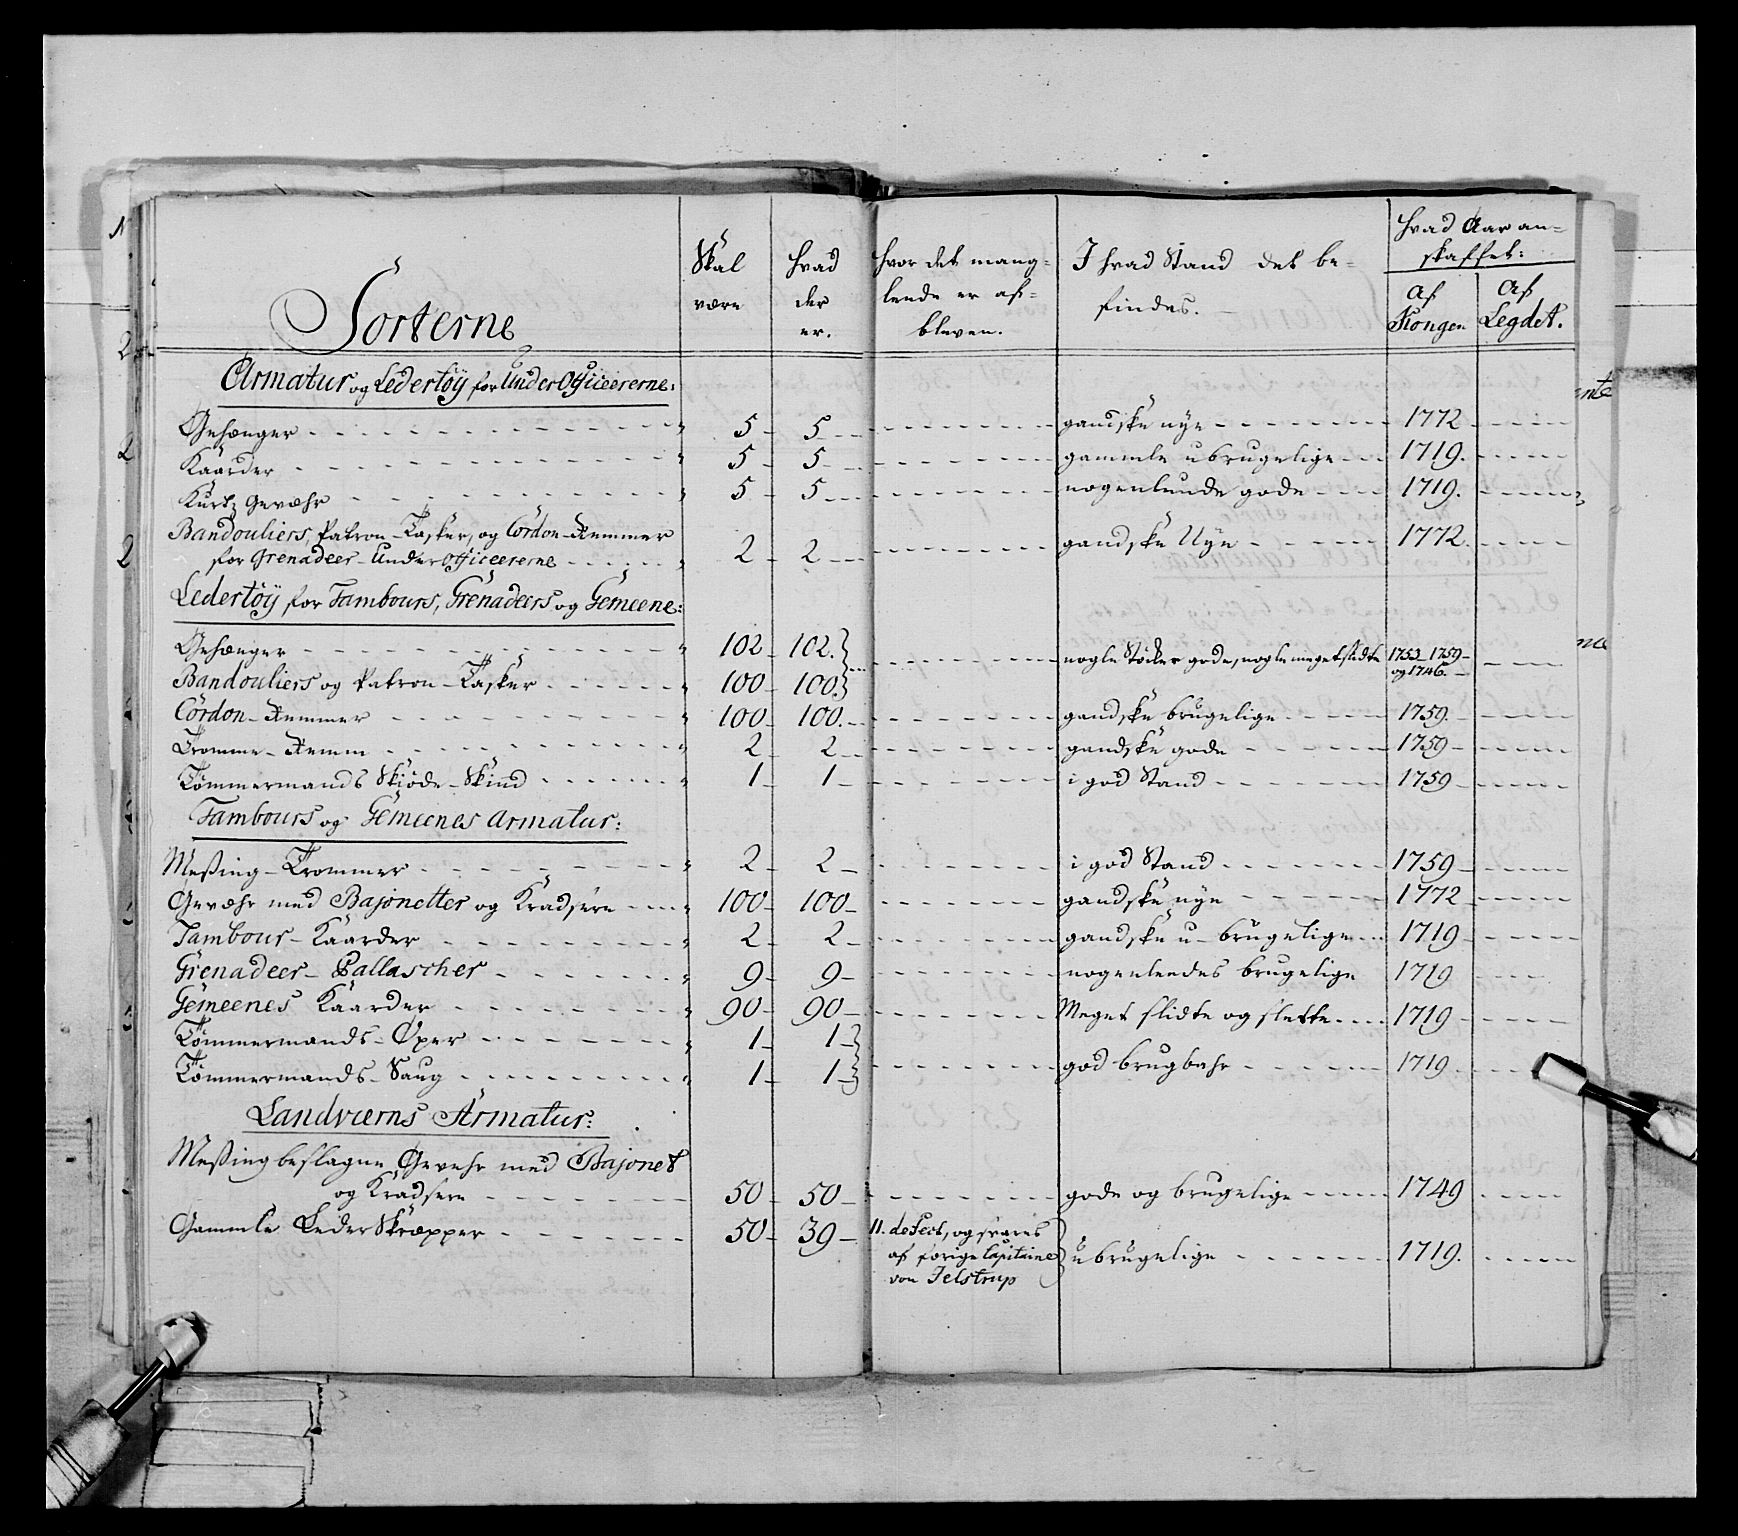 Sorterne | Skal være | hvad der er. | hvor det mang-lende er af-bleven. | I hvad Stand det be-findes. | hvad Aar an-skaffet: Af Kongen | Af Legdet.
Armatur og Ledertöy for UnderOfficeererne:
Gehænger | 5 | 5 | | gandske nye | 1772
Kaarder | 5 | 5 | | gammle ubrugelige | 1719.
Kurtz Gevæhr | 5 | 5 | | nogenlunde gode | 1719.
Bandouliers, Patron-Tasker, og Cordon-Remmer
for Grenadeer-UnderOfficeererne | 2 | 2 | | gandske Nye | 1772.
Ledertöy for Tambours, Grenadeers og Gemeene:
Gehænger | 102 | 102. | | nogle Stöcker gode, nogle meget slidte | 1753_1759_
og 1746.
Bandouliers og Patron-Tasker | 100 | 100.
Cordon-Remmer | 100 | 100. | | gandske brugelige | 1759.
Tromme-Remm | 2 | 2 | | gandske gode | 1759
Tömmermands Skiöde-Skind | 1 | 1 | | i god Stand | 1759
Tambours og Gemeenes Armatur:
Meßing-Trommer | 2 | 2 | | i god Stand | 1759
Gevæhr med Bajonetter og Kradsere | 100 | 100 | | gandske nye | 1772
Tambour-Kaarder | 2 | 2 | | gandske u-brugelige | 1719
Grenadeer-Pallascher | 9 | 9 | | nogenleedes brugelige | 1719
Gemeenes Kaarder | 90 | 90 | | Meget slidte og slette | 1719
Tömmermands-Öxer | 1 | 1
Tömmermands-Saug | 1 | 1 | | god brugbahr | 1719
Landværns Armatur:
Meßingbeslagne Gevehr med Bajonet
og Kradsere | 50 | 50 | | gode og brugelige | 1749
Gammle LederSkræpper | 50 | 39 | 11. defect, og svares | ubrugelige | 1719.
af forige Capitaine
von Jelstrup